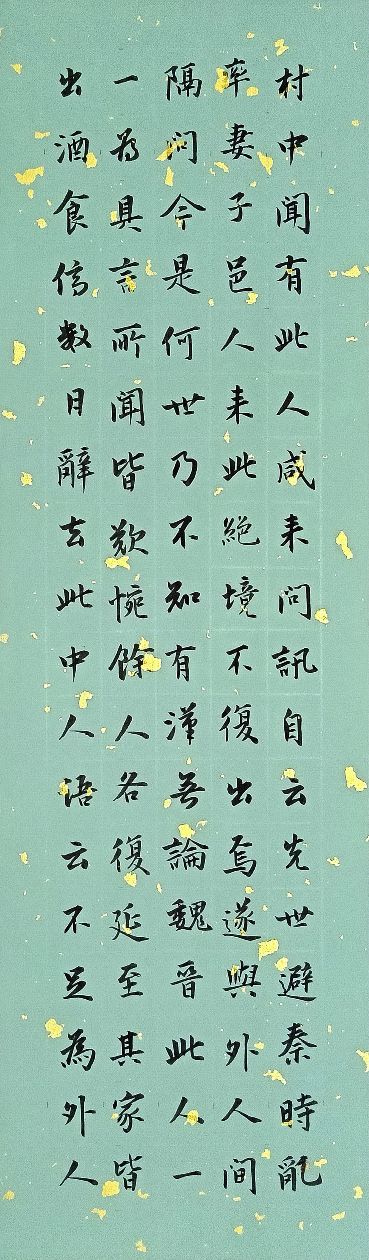 村中聞有此人咸来問訊自云先世避秦時亂
率妻子邑人来此絕境不復出焉遂與外人間
隔问今是何世乃不知有漢無論魏晉此人一
一為具言所聞皆歎惋餘人各復延至其家皆
出酒食停數日辭去此中人語云不足為外人